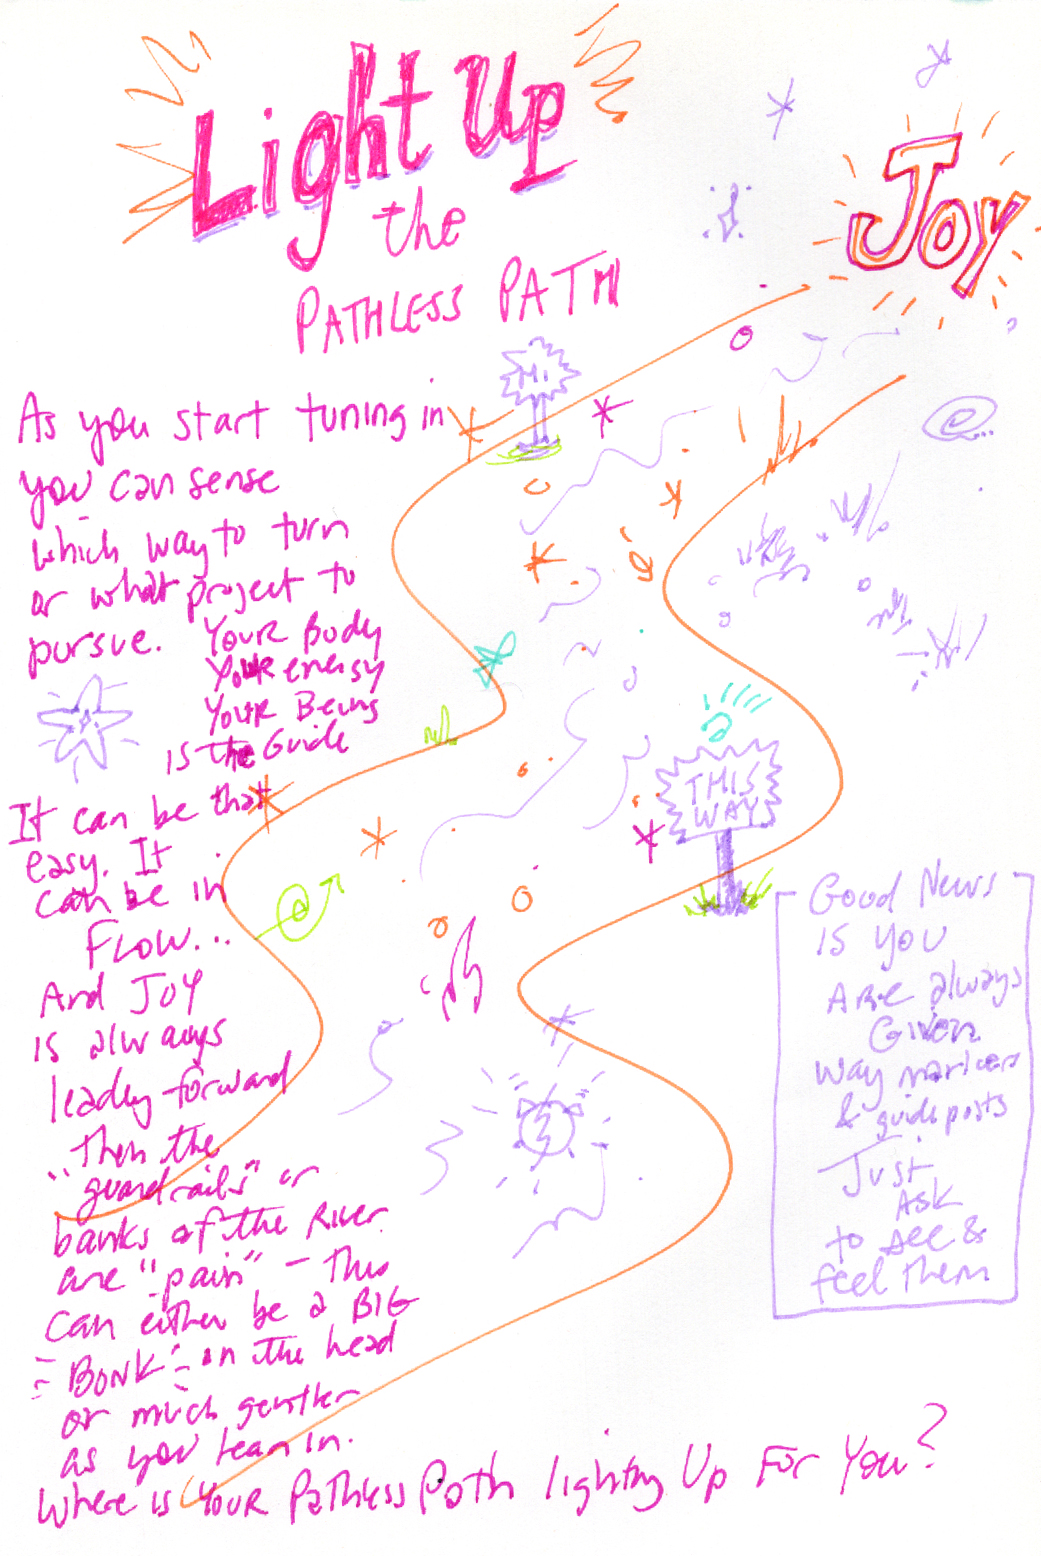 Light Up
the
PATHLESS PATH
JOY
HI
As you start tuning in
you can sense
which way to turn
or what project to
pursue. Your Body
Your energy
Your Being
is the Guide
It can be that
easy. It
can be in
FLOW...
And JOY
is always
leading forward
Then the
"guardrails" or
banks of the River
are "pain" – This
can either be a BIG
BONK on the head
or much gentler
as you lean in.
THIS
WAY
Good News
is you
Are always
Given
way markers
& guideposts
Just
ASK
to see &
feel them
Where is Your Pathless Path lighting Up For You?